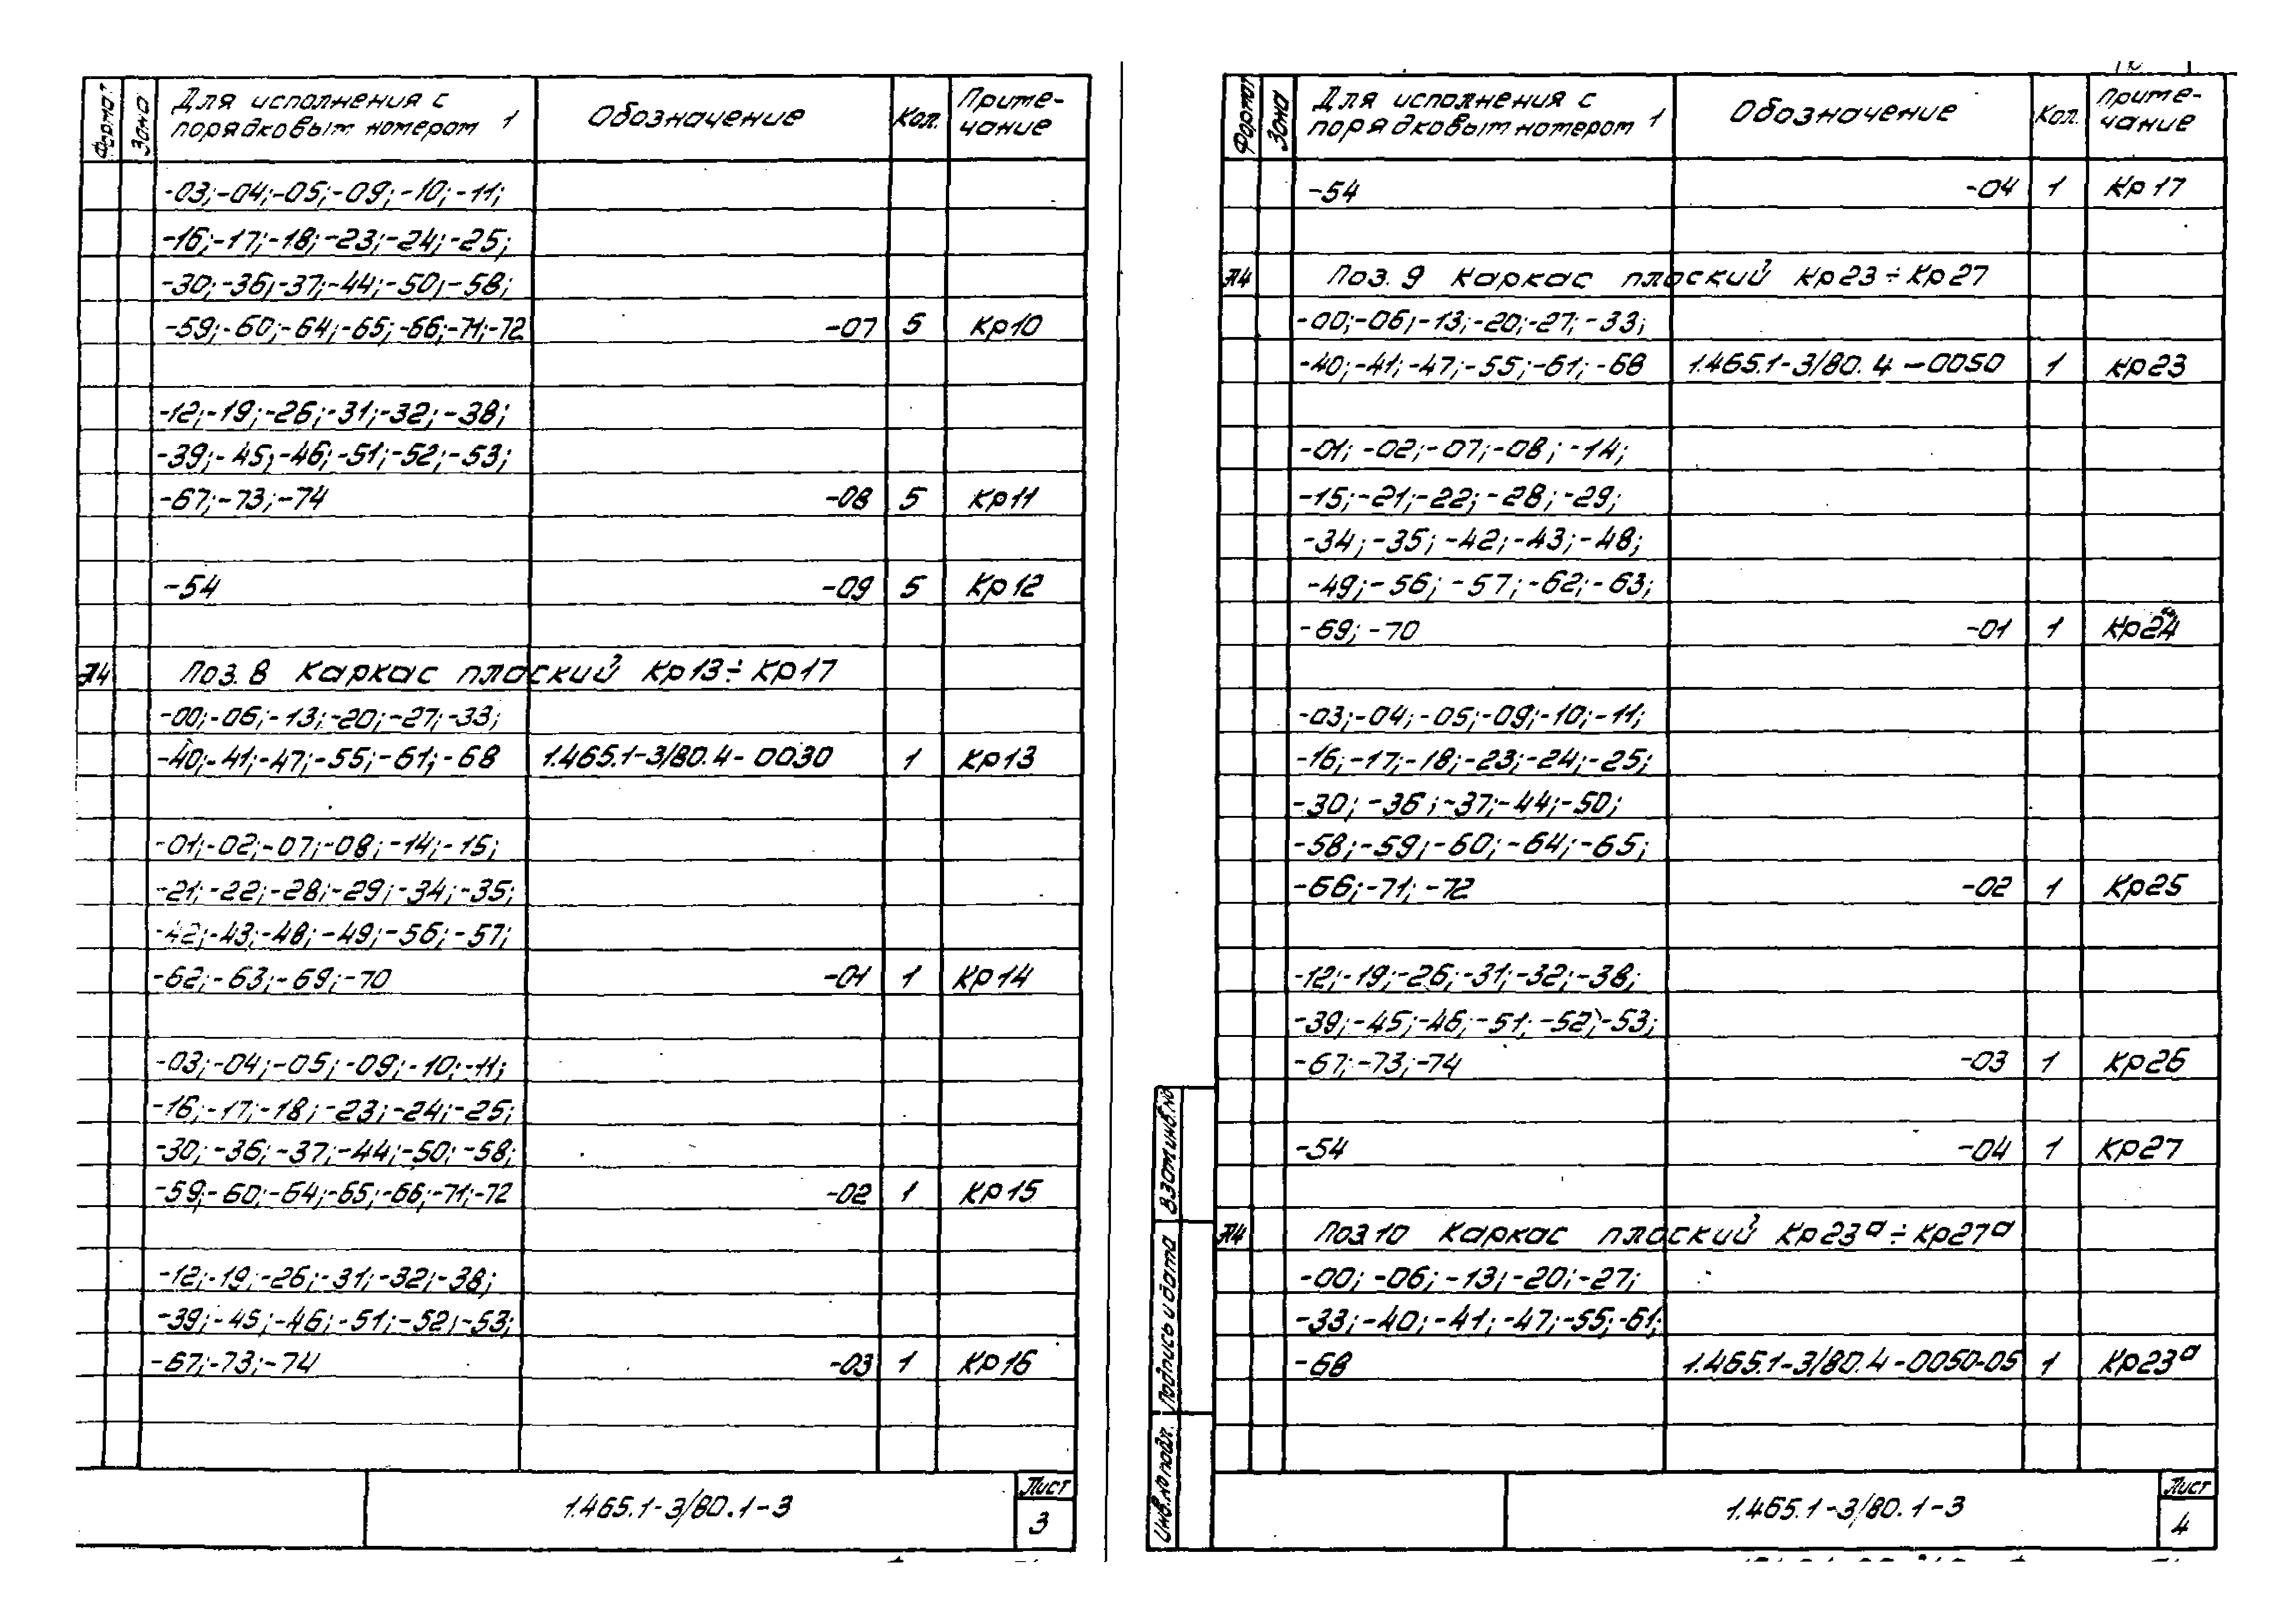 Формат Зона Для исполнения с порядковым номером 1 Обозначение Кол. Приме-чание
-03;-04;-05;-09;-10;-11;
-16;-17;-18;-23;-24;-25;
-30;-36;-37;-44;-50;-58;
-59;-60;-64;-65;-66;-71;-72 -07 5 Кр10
-12;-19;-26;-31;-32;-38;
-39;-45;-46;-51;-52;-53;
-67;-73;-74 -08 5 Кр11
-54 -09 5 Кр12
А4 Поз. 8 Каркас плоский Кр13÷Кр17
-00;-06;-13;-20;-27;-33;
-40;-41;-47;-55;-61;-68 1.465.1-3/80.4-0030 1 Кр13
-01;-02;-07;-08;-14;-15;
-21;-22;-28;-29;-34;-35;
-42;-43;-48;-49;-56;-57;
-62;-63;-69;-70 -01 1 Кр14
-03;-04;-05;-09;-10;-11;
-16;-17;-18;-23;-24;-25;
-30;-36;-37;-44;-50;-58;
-59;-60;-64;-65;-66;-71;-72 -02 1 Кр15
-12;-19;-26;-31;-32;-38;
-39;-45;-46;-51;-52;-53;
-67;-73;-74 -03 1 Кр16
1.465.1-3/80.1-3
Лист
3
Формат Зона Для исполнения с порядковым номером 1 Обозначение Кол. Приме-чание
-54 -04 1 Кр17
А4 Поз. 9 Каркас плоский Кр23÷Кр27
-00;-06;-13;-20;-27;-33;
-40;-41;-47;-55;-61;-68 1.465.1-3/80.4-0050 1 Кр23
-01;-02;-07;-08;-14;
-15;-21;-22;-28;-29;
-34;-35;-42;-43;-48;
-49;-56;-57;-62;-63;
-69;-70 -01 1 Кр24
-03;-04;-05;-09;-10;-11;
-16;-17;-18;-23;-24;-25;
-30;-36;-37;-44;-50;
-58;-59;-60;-64;-65;
-66;-71;-72 -02 1 Кр25
-12;-19;-26;-31;-32;-38;
-39;-45;-46;-51;-52;-53;
-67;-73;-74 -03 1 Кр26
-54 -04 1 Кр27
А4 Поз.10 Каркас плоский Кр23а÷Кр27а
-00;-06;-13;-20;-27;
-33;-40;-41;-47;-55;-61;
-68 1.465.1-3/80.4-0050-05 1 Кр23а
Взам инв.№
Подпись и дата
Инв.№ подл.
1.465.1-3/80.1-3
Лист
4